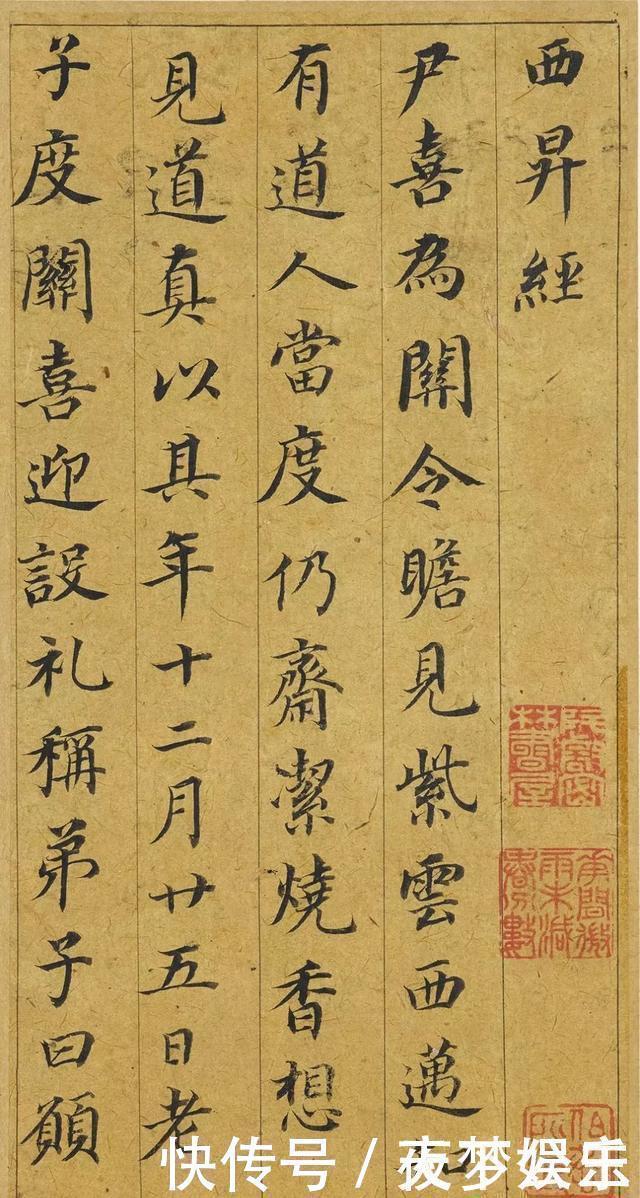 西昇經
尹喜為關令瞻見紫雲西邁知
有道人當度仍齋潔燒香想
見道真以其年十二月廿五日老
子度關喜迎設礼稱弟子曰願
快传号 / 夜梦娱乐